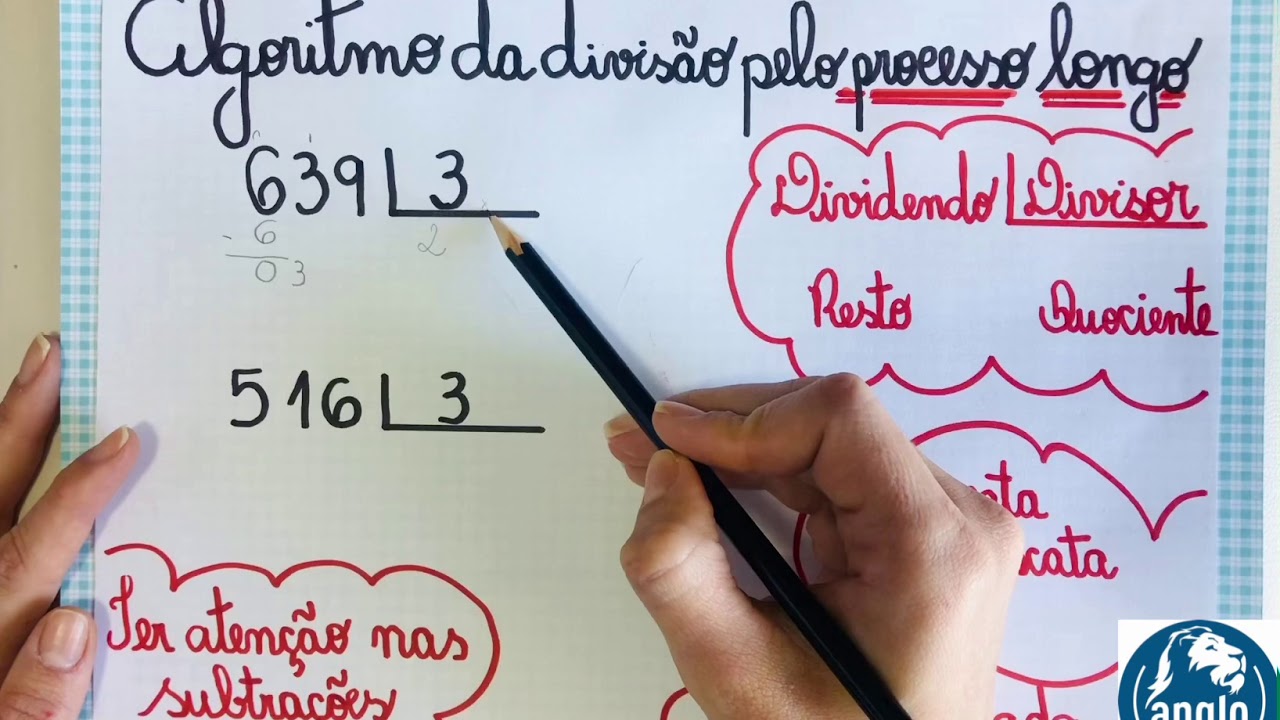 Algoritmo da divisão pelo processo longo
639 3
- 6 2
03
Dividendo Divisor
Resto Quociente
516 3
Ter atenção nas
subtrações
anglo